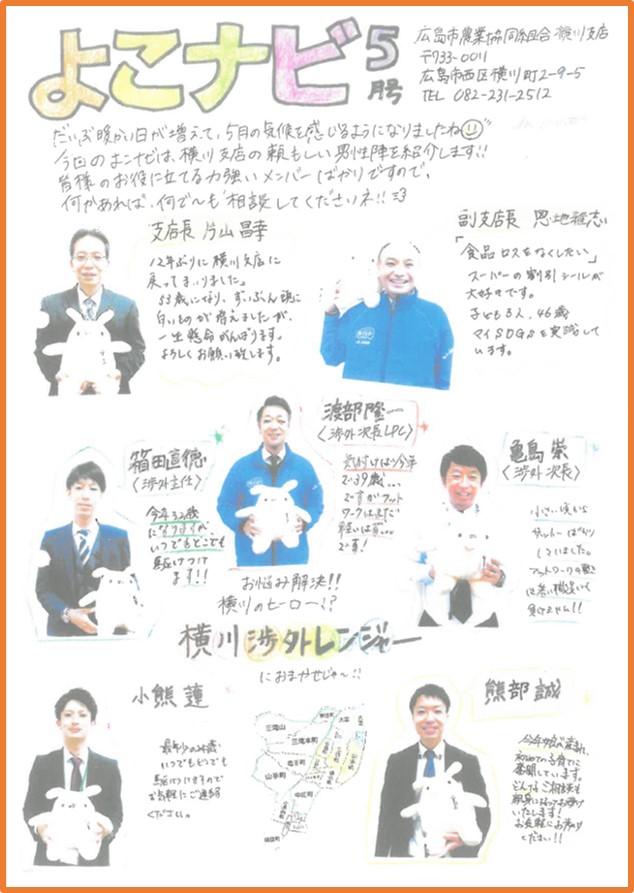 よこナビ 5月号
広島市農業協同組合 横川支店
〒733-0011
広島市西区横川町2-9-5
TEL 082-231-2512
だいぶ暖かい日が増えて、5月の気候を感じるようになりましたね
今回のよこナビは、横川支店の頼もしい男性陣を紹介します!!
皆様のお役に立てる力強いメンバーばかりですので、
何かあれば、何で〜も相談してくださいネ!!
支店長 片山 昌幸
12年ぶりに横川支店に
戻ってまいりました。
53歳になり、ずいぶん頭に
白いものが増えましたが、
一生懸命がんばります。
よろしくお願い致します。
副支店長 恩地雅志
「食品ロスをなくしたい」
スーパーの割引シールが
大好きです。
子ども3人、46歳
マイSDGsを実践して
います。
箱田直徳
〈渉外主任〉
今年32歳
になりますが
いつでもどこでも
駆けつけ
ます!!
渡部隆一
〈渉外次長LPC〉
気付けば今年
で39歳…
ですがフット
ワークはまだ
軽いは
です!
亀島 崇
〈渉外次長〉
小さい頃から
サッカーばかり
していました。
フットワークの軽さ
は若い職員にも
負けません!!
お悩み解決!!
横川のヒーロー!?
横川渉外レンジャー
におまかせじゃ〜!!
小熊 蓮
最年少の24歳!
いつでもどこでも
駆けつけますので
お気軽にご連絡
ください。
三滝山
三滝本町
竜王町
山手町
中広町
熊部 誠
今年子供が産まれ、
初めての子育てに
奮闘しています。
どんなご相談も
親身になってお受け
いたします!
お気軽にお声かけ
ください!!